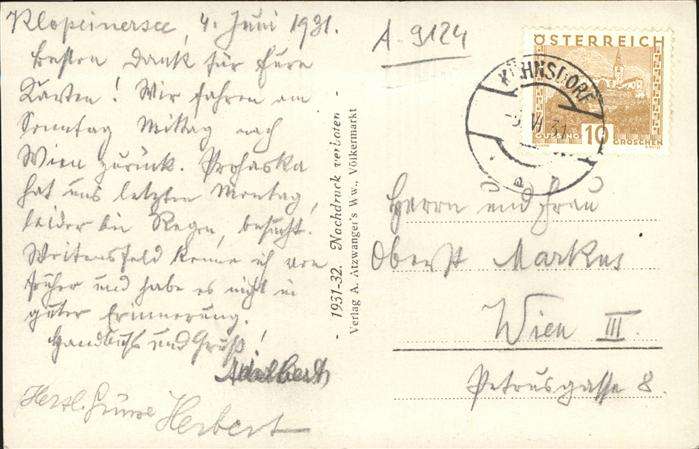 Klopeinersee, 4. Juni 1931.
Besten Dank für Eure
Karten! Wir fahren am
Sonntag Mittag nach
Wien zurück. Prohaska
hat uns letzten Montag,
leider bei Regen, besucht.
Weitensfeld kenne ich von
früher und habe es nicht in
guter Erinnerung.
Handkuß und Gruß!
Adalbert
Herzl. Grüsse Herbert
A-9124
- 1931-32. Nachdruck verboten -
Verlag A. Atzwanger's Ww., Völkermarkt
ÖSTERREICH
KÜHNSDORF
10
GROSCHEN
Herrn und Frau
Oberst Markus
Wien III.
Petrusgasse 8.